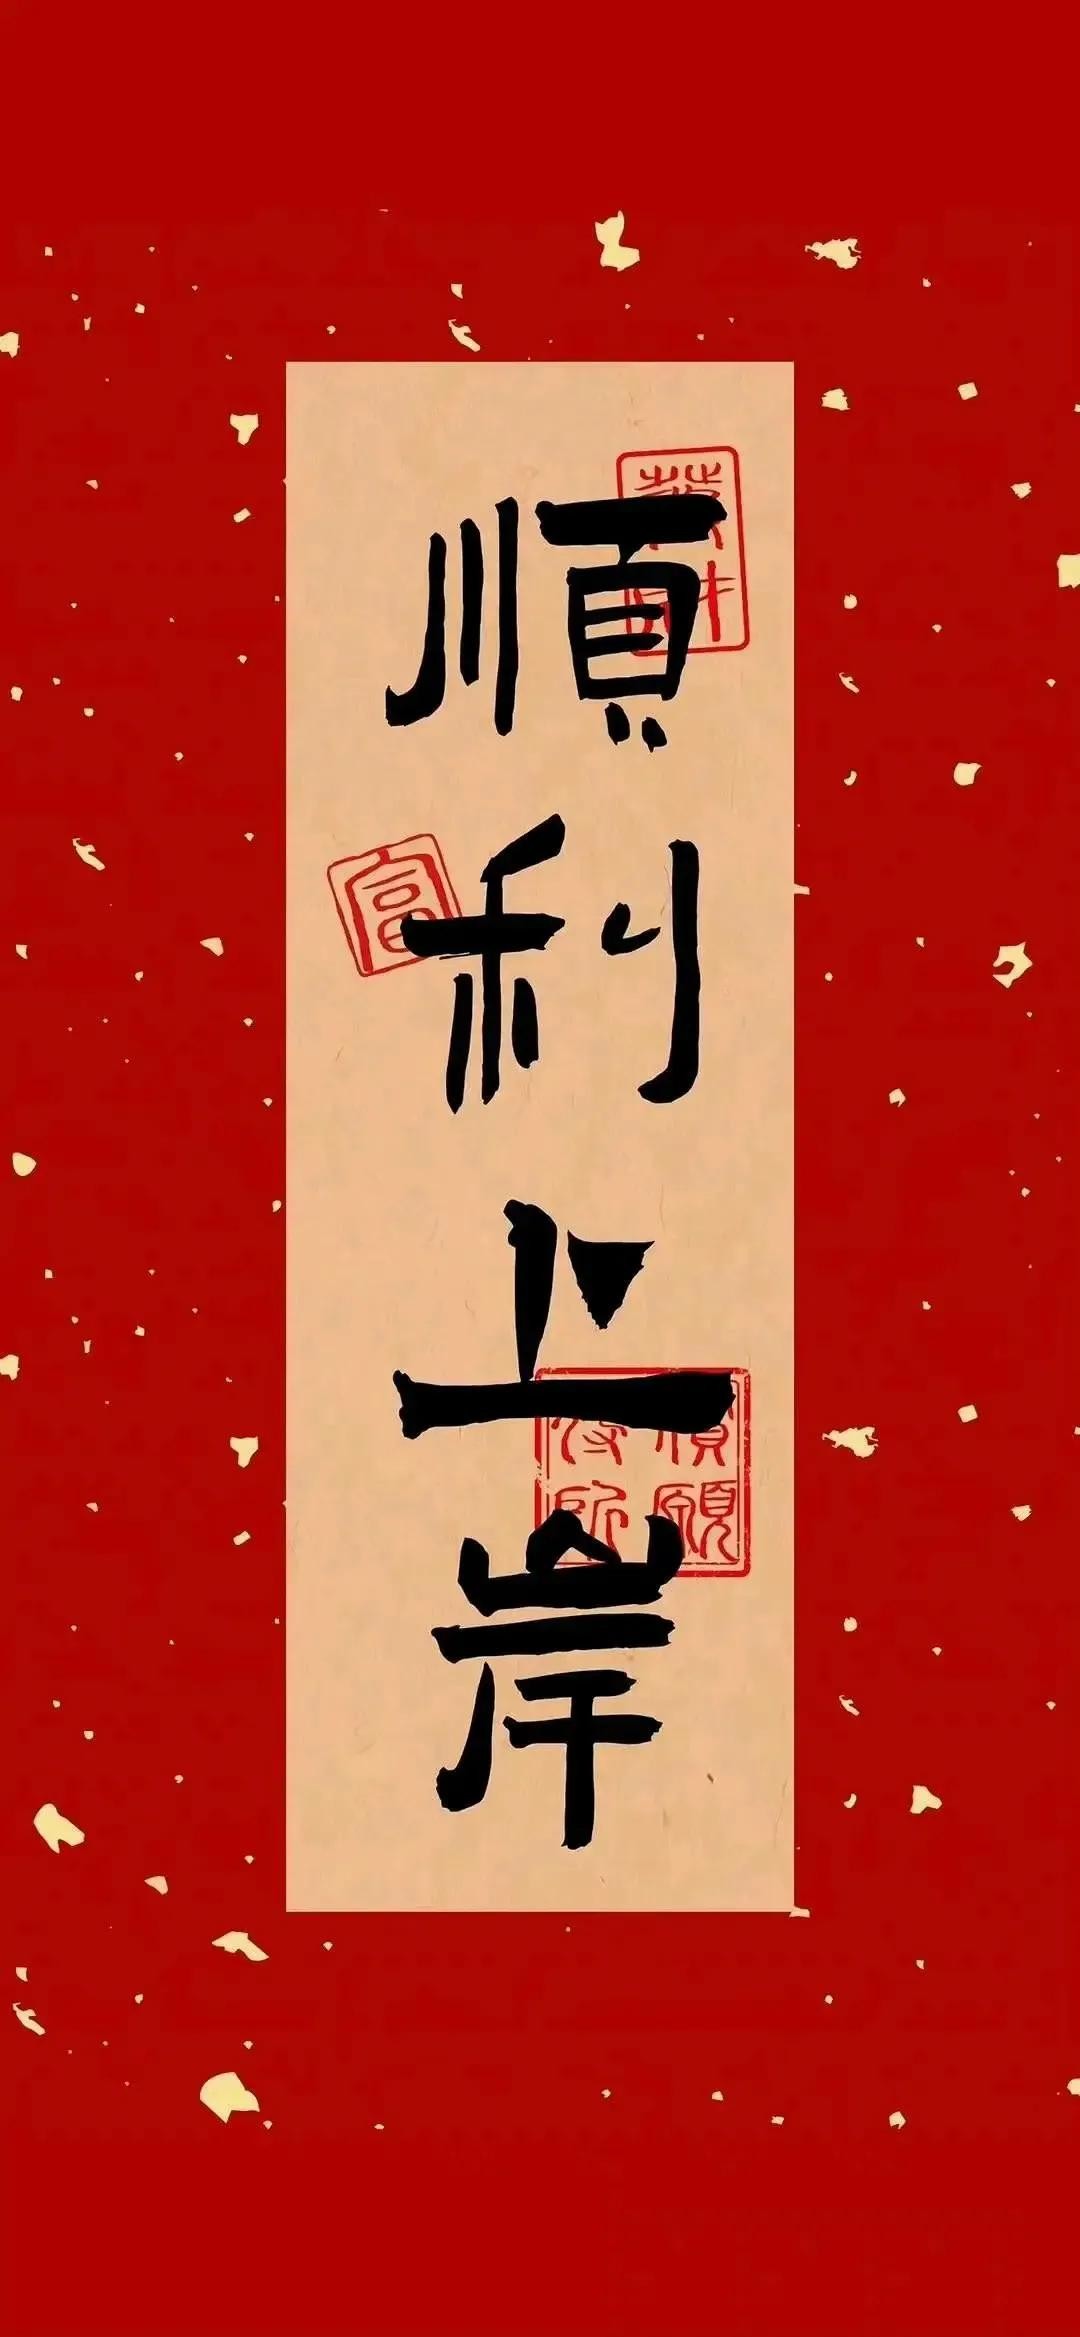 順利上岸
富